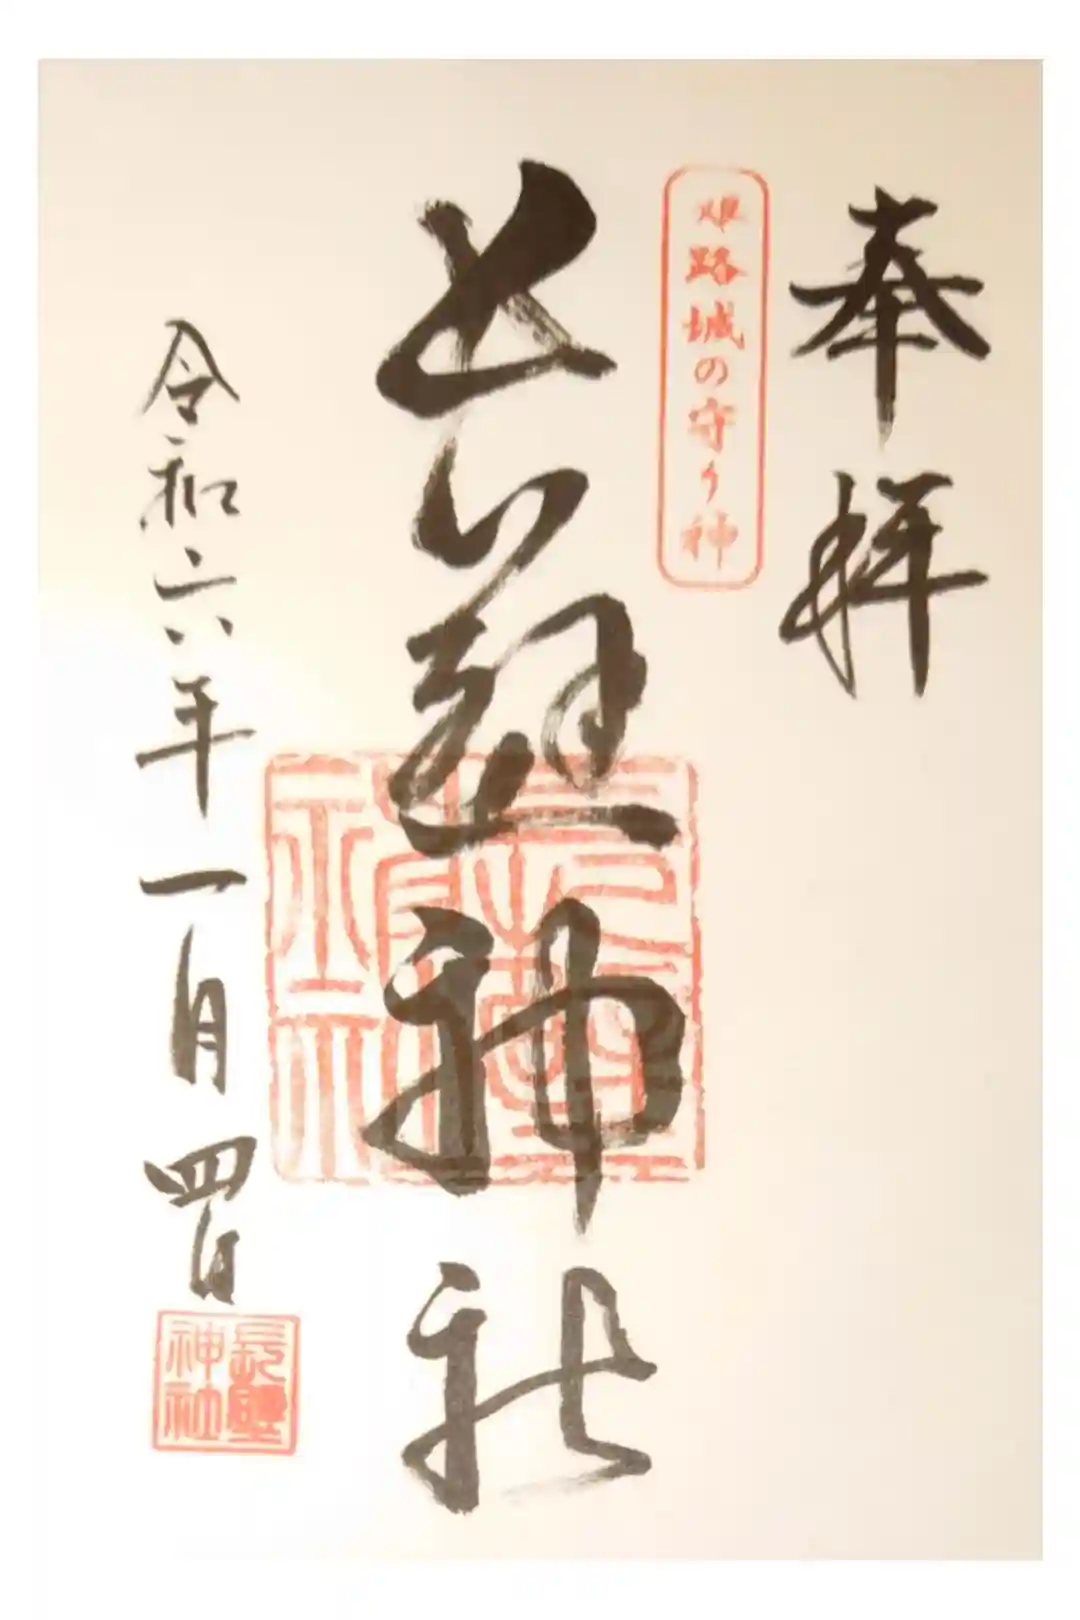 奉拝
姫路城の守り神
長壁神社
令和六年一月四日
長壁
神社
長壁
神社